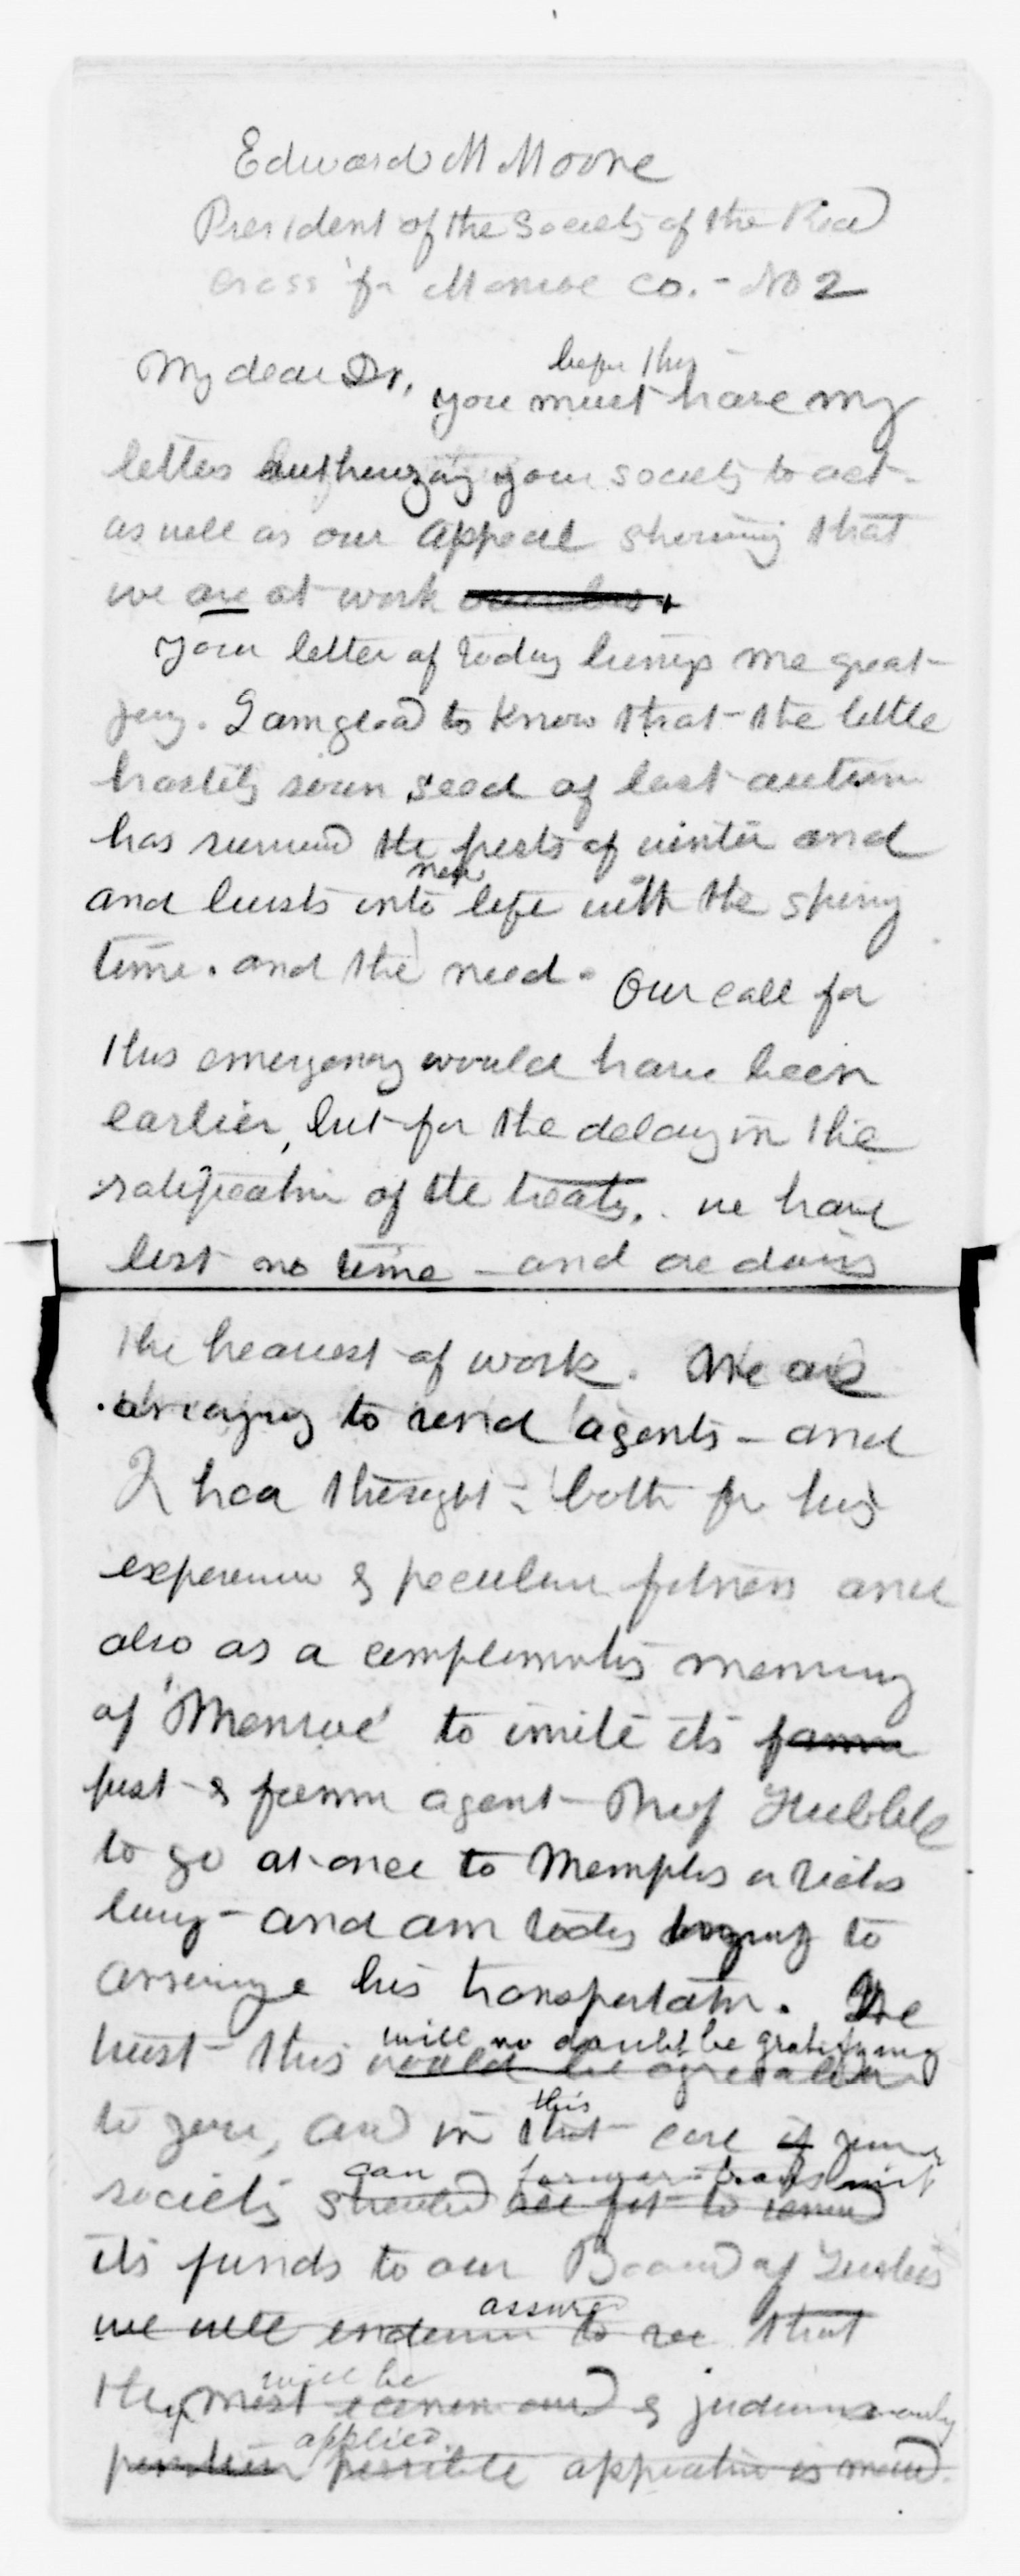 Edward M Moore
President of the Society of the Red
Cross for Monroe Co. - No 2
My dear Dr,
before this
you must have my
letters authorizing your society to act -
as well as our appeal showing that
we are at work
Your letter of today brings me great
joy. I am glad to know that the little
hastily sown seed of last autumn
has survived the frosts of winter and
new
and bursts into life with the spring
time. and the need. Our call for
this emergency would have been
earlier, but for the delay in the
ratification of the treaty, we have
lost no time - and are doing
the heaviest of work. We are
arranging to send agents - and
I had thought - both for his
experience & peculiar fitness and
also as a complimentary memory
of 'Monroe' to invite its
first & former agent - Prof Hubbell
to go at once to Memphis or Vicks
burg - and am today trying to
arrange his transportation. We
will no doubt be gratifying
trust this would be agreeable
this
to you, and in that case if your
can forever transmit
society should see fit to
its funds to our Board of Trustees
assure
we will endeavor to see that
will be
the most economical & judiciously
applied.
possible application is made.